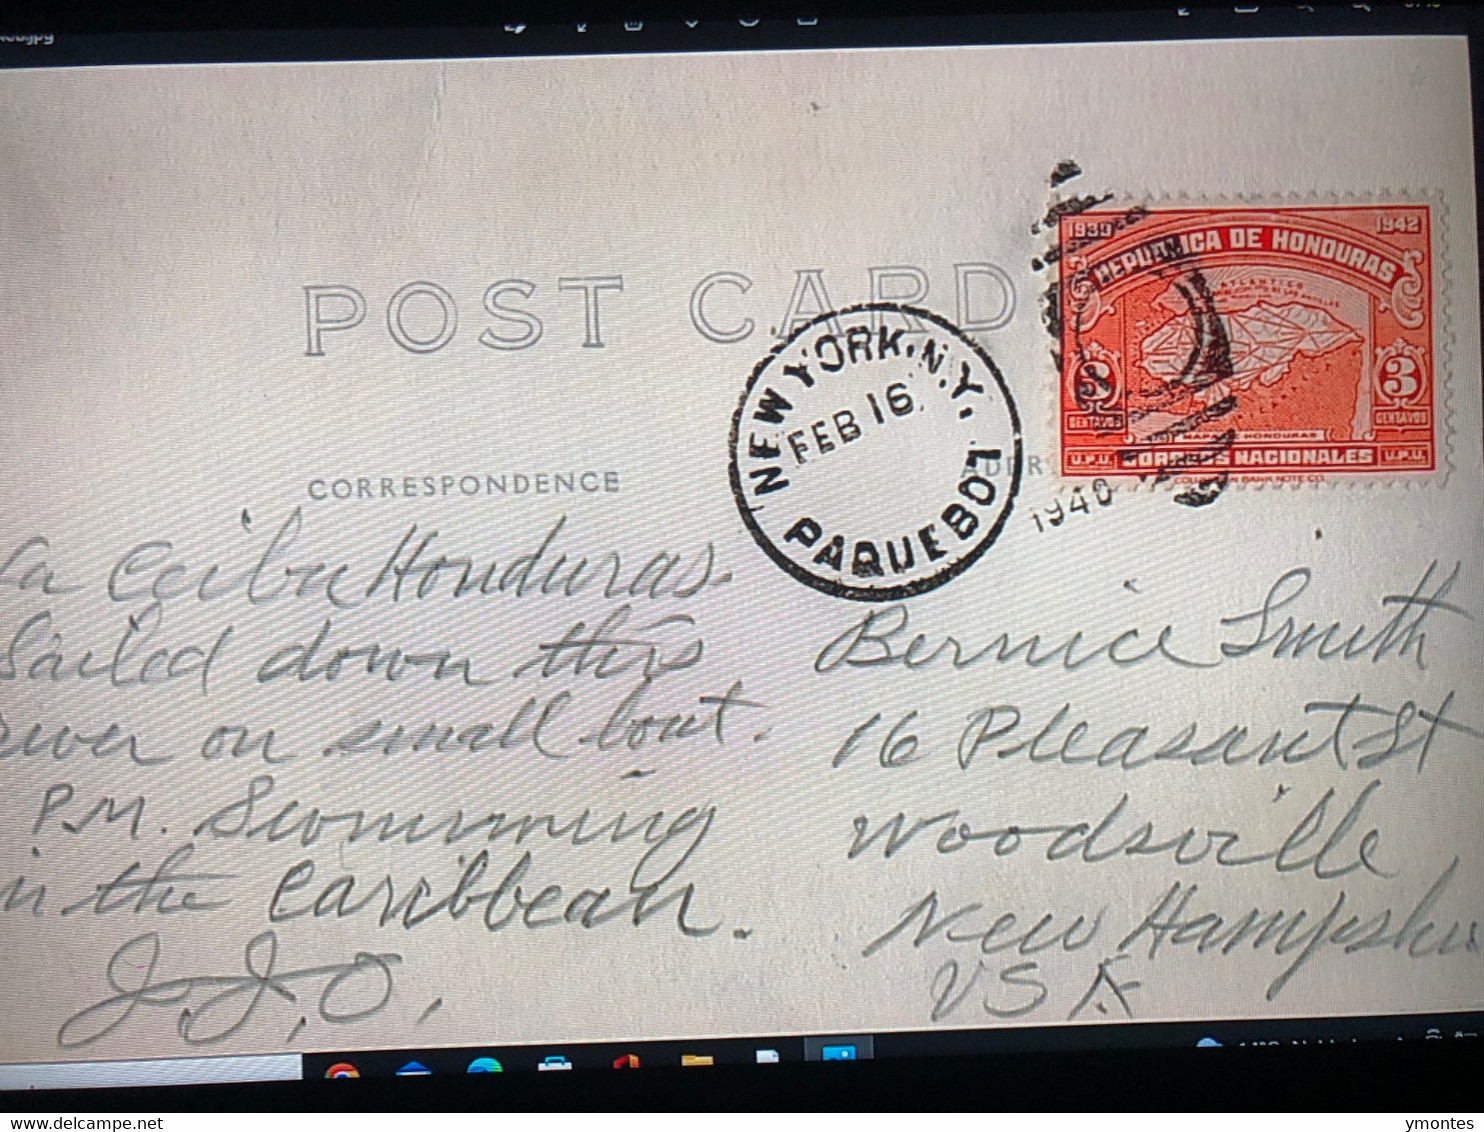 POST CARD
CORRESPONDENCE
NEW YORK, N.Y.
FEB 16
PAQUEBOT
1940
1939 1942
REPUBLICA DE HONDURAS
ATLANTICO
ANTILLAS
3 3
CENTAVOS CENTAVOS
MAPA HONDURAS
U.P.U. CORREOS NACIONALES U.P.U.
COLUMBIAN BANK NOTE CO.
La Ceiba Honduras.
Sailed down this
river on small boat.
P.M. Swimming
in the Caribbean.
J.J.O.
Bernice Smith
16 Pleasant St
Woodsville
New Hampshire
USA
delcampe.net
ymontes